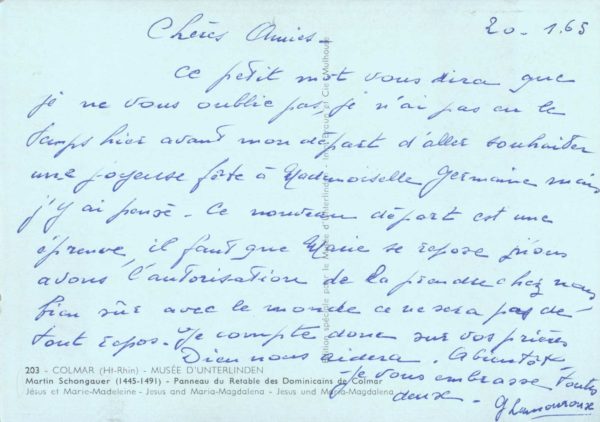 20-1.65
Chères Amies-
Ce petit mot vous dira que
je ne vous oublie pas, je n'ai pas eu le
temps hier avant mon départ d'aller souhaiter
une joyeuse fête à Mademoiselle Germaine mais
j'y ai pensé. Ce nouveau départ est une
épreuve, il faut que Marie se repose, nous
avons l'autorisation de la prendre chez nous
bien sûr avec le monde ce ne sera pas de
tout repos. Je compte donc sur vos prières
Dieu nous aidera. A bientôt
Je vous embrasse toutes
deux-
203 - COLMAR (Ht-Rhin) - MUSÉE D'UNTERLINDEN
Martin Schongauer (1445-1491) - Panneau du Retable des Dominicains de Colmar
Jésus et Marie-Madeleine - Jesus and Maria-Magdalena - Jesus und Maria-Magdalena
Edition spéciale pour le Musée d'Unterlinden - Braun et Cie, Mulhouse